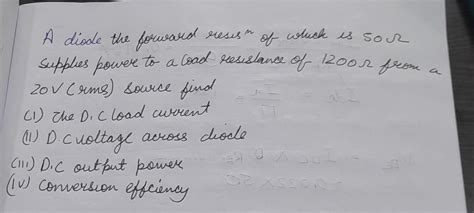 A diode the forward resisⁿ of which is 50Ω
supplies power to a load resistance of 1200Ω from a
20V (rms) source find
(i) The D.C load current
(ii) D.C voltage across diode
(iii) D.C output power
(iv) Conversion effciency